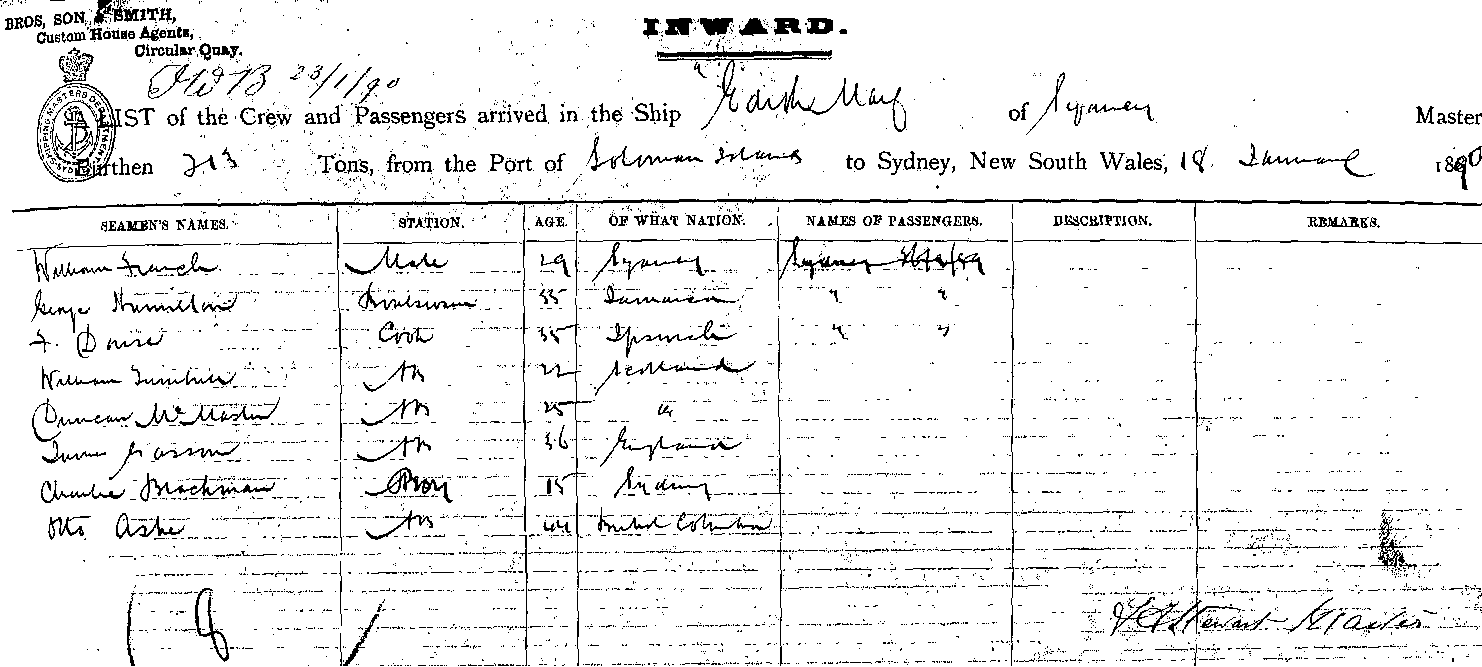 BROS, SON, & SMITH,
Custom House Agents,
Circular Quay.
INWARD.
23/1/90
LIST of the Crew and Passengers arrived in the Ship "Edith May of Sydney Master
Burthen 213 Tons, from the Port of Soloman Islands to Sydney, New South Wales, 18 January 1890
SEAMEN'S NAMES. STATION. AGE. OF WHAT NATION. NAMES OF PASSENGERS. DESCRIPTION. REMARKS.
William French Mate 29 Sydney Sydney
George Hamilton Boatswain 35 Jamaica " "
F. Cook 35 Ipswich " "
William Turnbull AB 22 Scotland
Duncan McMaster AB 25 "
James Gasson AB 36 England
Charlie Brachman Boy 15 Sydney
Otto Ashe AB 44 British Columbia
8
Stewart Master